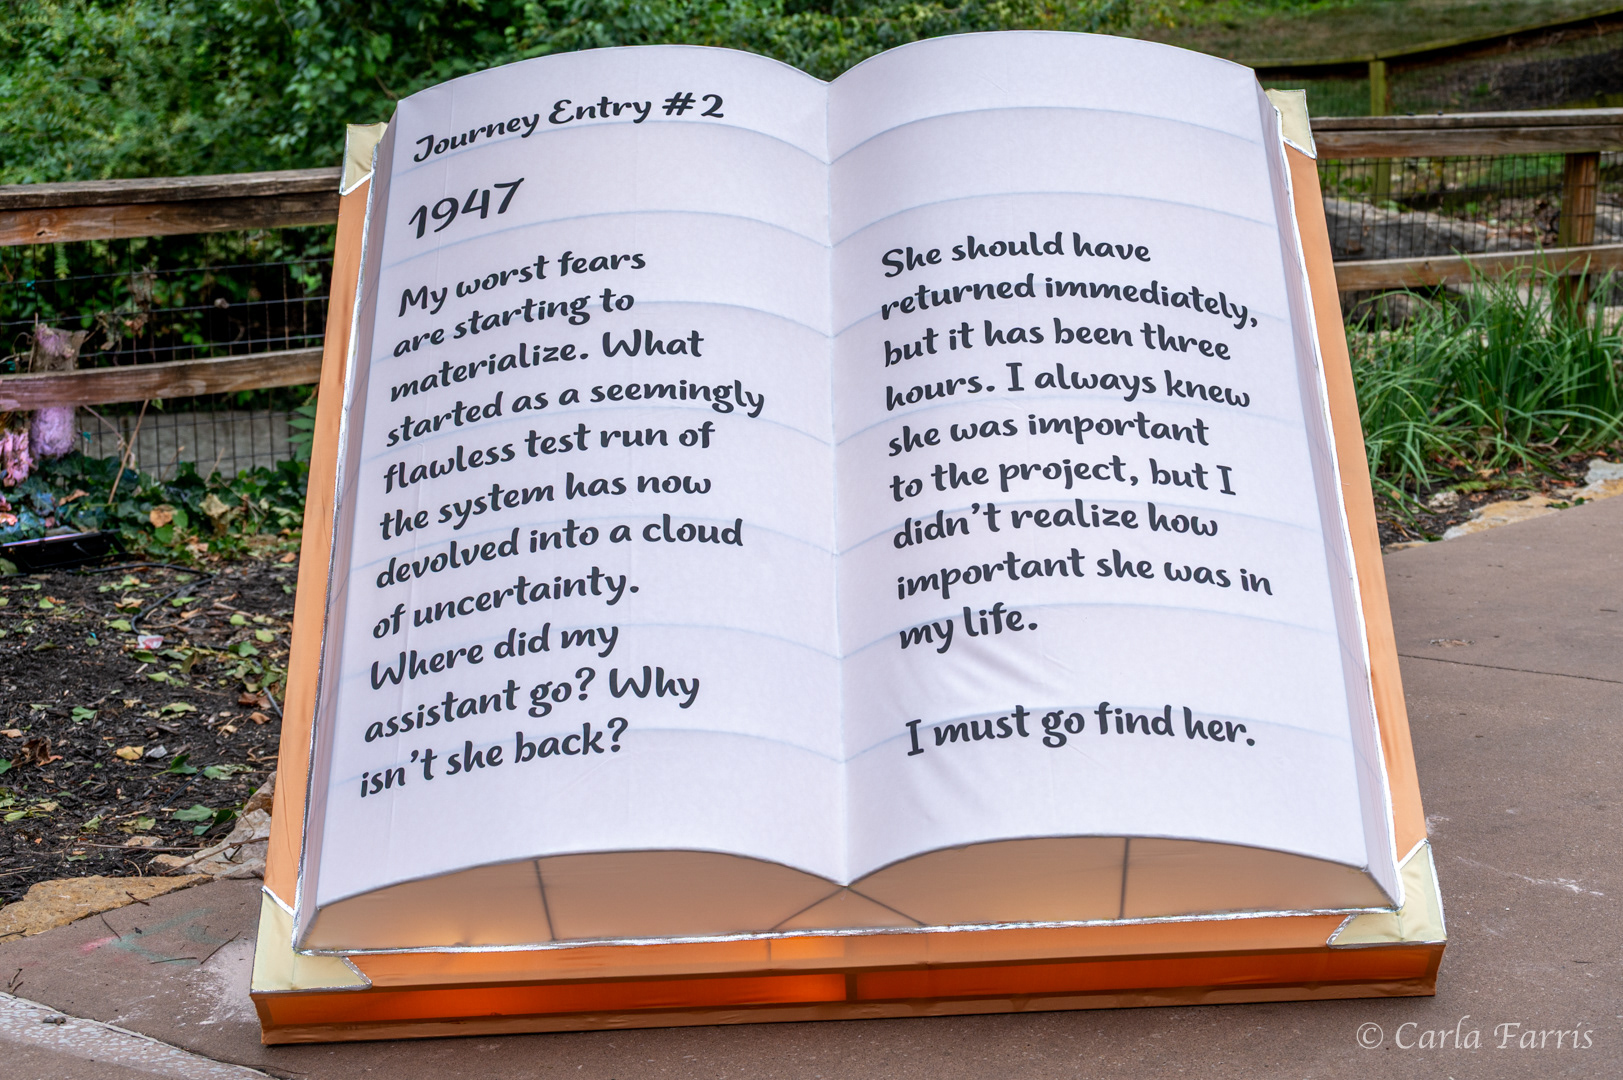 Journey Entry #2
1947
My worst fears
are starting to
materialize. What
started as a seemingly
flawless test run of
the system has now
devolved into a cloud
of uncertainty.
Where did my
assistant go? Why
isn't she back?
She should have
returned immediately,
but it has been three
hours. I always knew
she was important
to the project, but I
didn't realize how
important she was in
my life.
I must go find her.
© Carla Farris